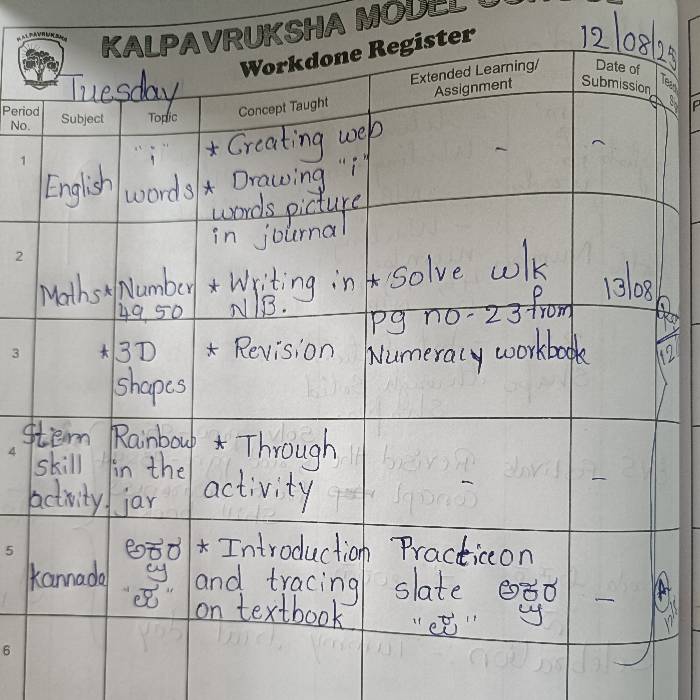 KALPAVRUKSHA
KALPAVRUKSHA MODEL
Workdone Register
12/08/25
Tuesday
Period No.
Subject
Topic
Concept Taught
Extended Learning/ Assignment
Date of Submission
1
English
"i" words
* Creating web
* Drawing "i" words picture in journal
-
-
2
Maths
* Number 49, 50
* Writing in N/B.
* Solve w/k pg no - 23 from Numeracy workbook
13/08
3
* 3D shapes
* Revision
4
Stem skill activity.
Rainbow in the jar
* Through activity
-
-
5
Kannada
ಅಕ್ಷರ
* Introduction and tracing on textbook
Practice on slate ಅಕ್ಷರ
-
6